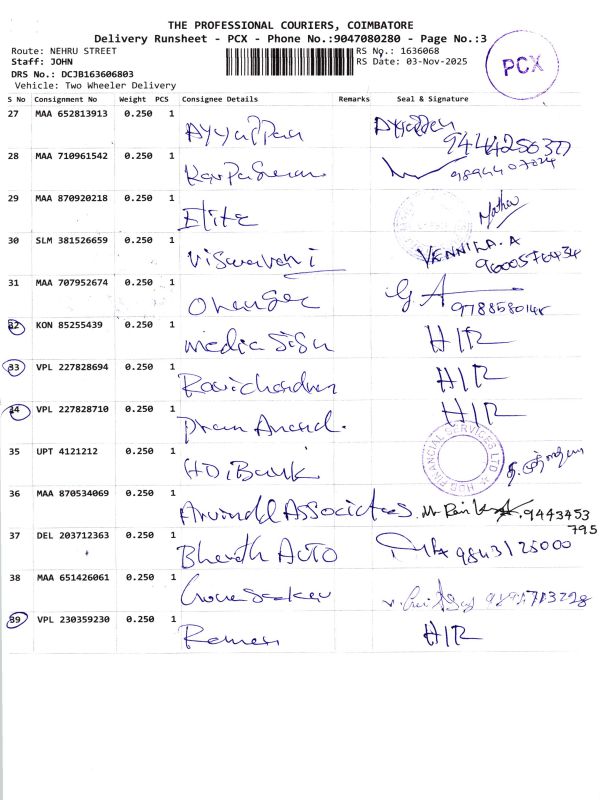 THE PROFESSIONAL COURIERS, COIMBATORE
Delivery Runsheet - PCX - Phone No.:9047080280 - Page No.:3
Route: NEHRU STREET
RS No.: 1636068
Staff: JOHN
RS Date: 03-Nov-2025
DRS No.: DCJB163606803
Vehicle: Two Wheeler Delivery
PCX
S No Consignment No Weight PCS Consignee Details Remarks Seal & Signature
27 MAA 652813913 0.250 1 Ayyappan Ayyappan
28 MAA 710961542 0.250 1
29 MAA 870920218 0.250 1 Elite
30 SLM 381526659 0.250 1 Viswavani VENNILA. A
9600576434
31 MAA 707952674 0.250 1
32 KON 85255439 0.250 1 media
33 VPL 227828694 0.250 1 Ravichandran
34 VPL 227828710 0.250 1 Anand.
35 UPT 4121212 0.250 1 Bank
36 MAA 870534069 0.250 1 Arvind Associates 9443453
795
37 DEL 203712363 0.250 1 Bharath AUTO 9843125000
38 MAA 651426061 0.250 1
39 VPL 230359230 0.250 1 Raman